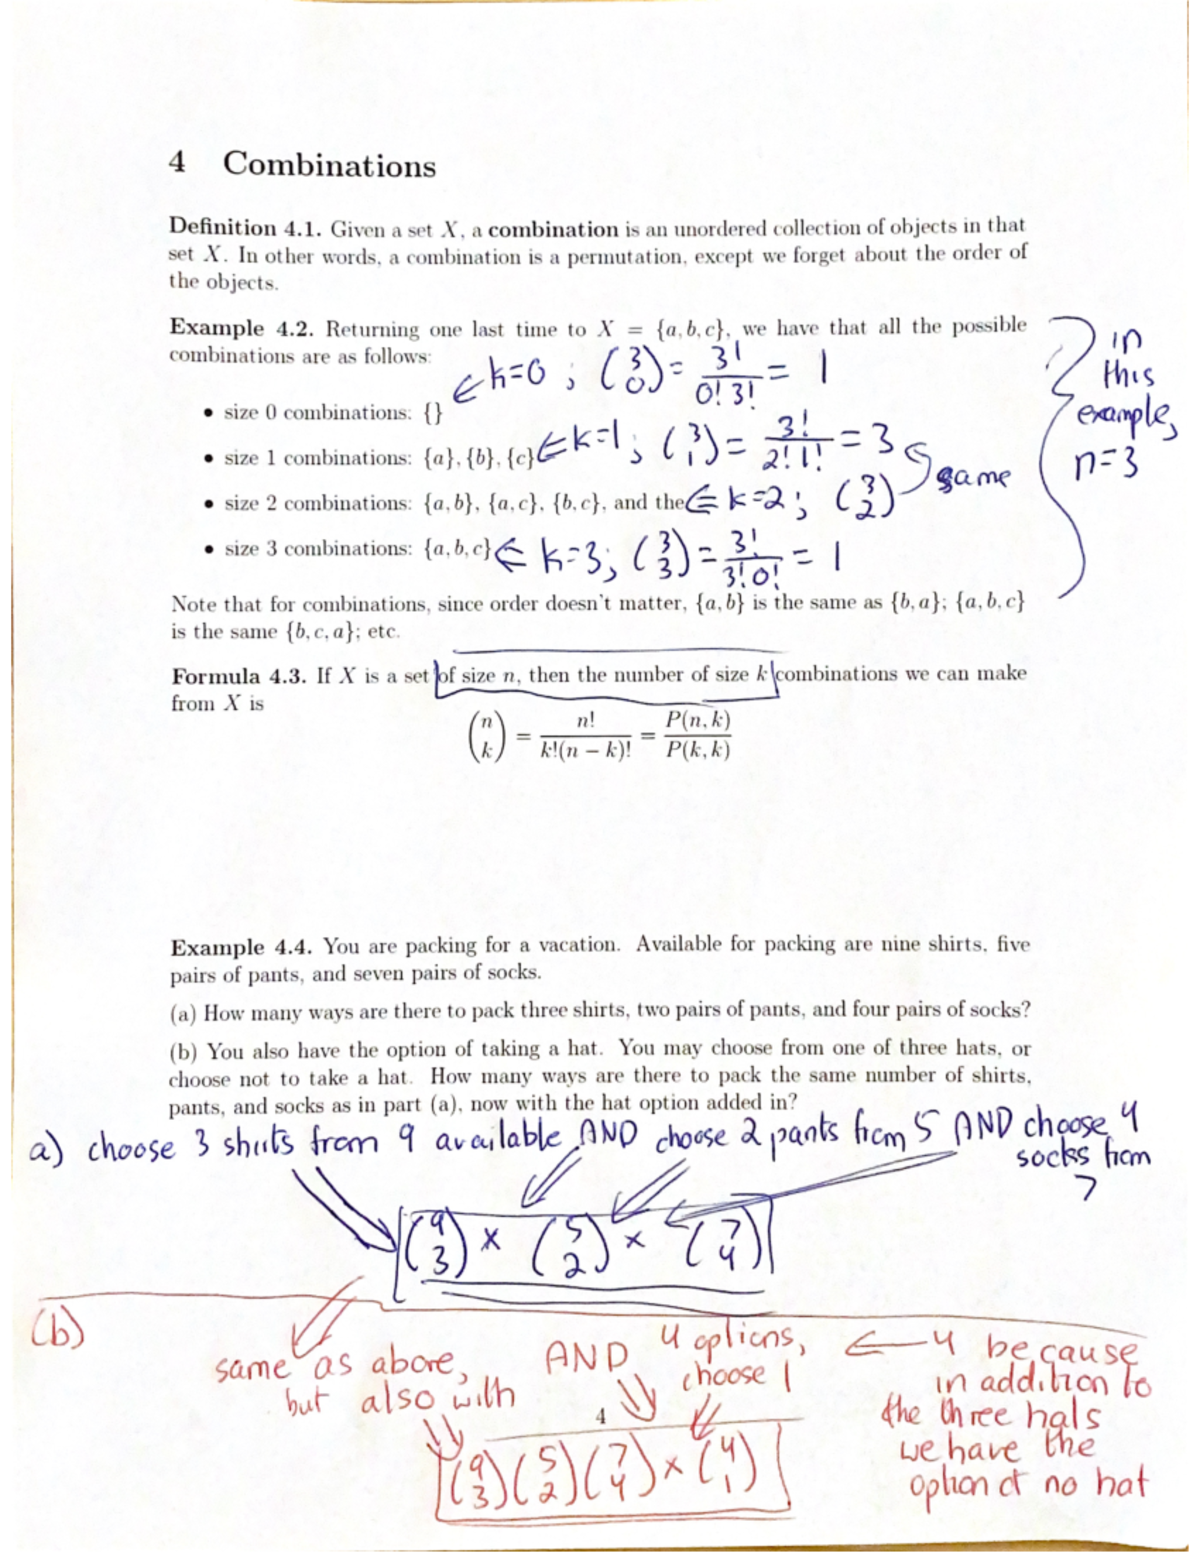 4 Combinations
Definition 4.1. Given a set X, a combination is an unordered collection of objects in that
set X. In other words, a combination is a permutation, except we forget about the order of
the objects.
Example 4.2. Returning one last time to X = {a, b, c}, we have that all the possible
combinations are as follows:
⇐ k=0 ; (3 0) = 3!/(0! 3!) = 1
• size 0 combinations: {}
• size 1 combinations: {a}, {b}, {c} ⇐ k=1 ; (3 1) = 3!/(2! 1!) = 3
same
• size 2 combinations: {a, b}, {a, c}, {b, c}, and the ⇐ k=2 ; (3 2)
• size 3 combinations: {a, b, c} ⇐ k=3 ; (3 3) = 3!/(3! 0!) = 1
in
this
example,
n=3
Note that for combinations, since order doesn't matter, {a, b} is the same as {b, a}; {a, b, c}
is the same {b, c, a}; etc.
Formula 4.3. If X is a set of size n, then the number of size k combinations we can make
from X is
(n k) = n!/(k!(n − k)!) = P(n, k)/P(k, k)
Example 4.4. You are packing for a vacation. Available for packing are nine shirts, five
pairs of pants, and seven pairs of socks.
(a) How many ways are there to pack three shirts, two pairs of pants, and four pairs of socks?
(b) You also have the option of taking a hat. You may choose from one of three hats, or
choose not to take a hat. How many ways are there to pack the same number of shirts,
pants, and socks as in part (a), now with the hat option added in?
a) choose 3 shirts from 9 available AND choose 2 pants from 5 AND choose 4
socks from
7
(9 3) × (5 2) × (7 4)
(b)
same as above,
but also with
AND
4 options,
choose 1
← 4 because
in addition to
the three hats
we have the
option of no hat
4
(9 3)(5 2)(7 4) × (4 1)